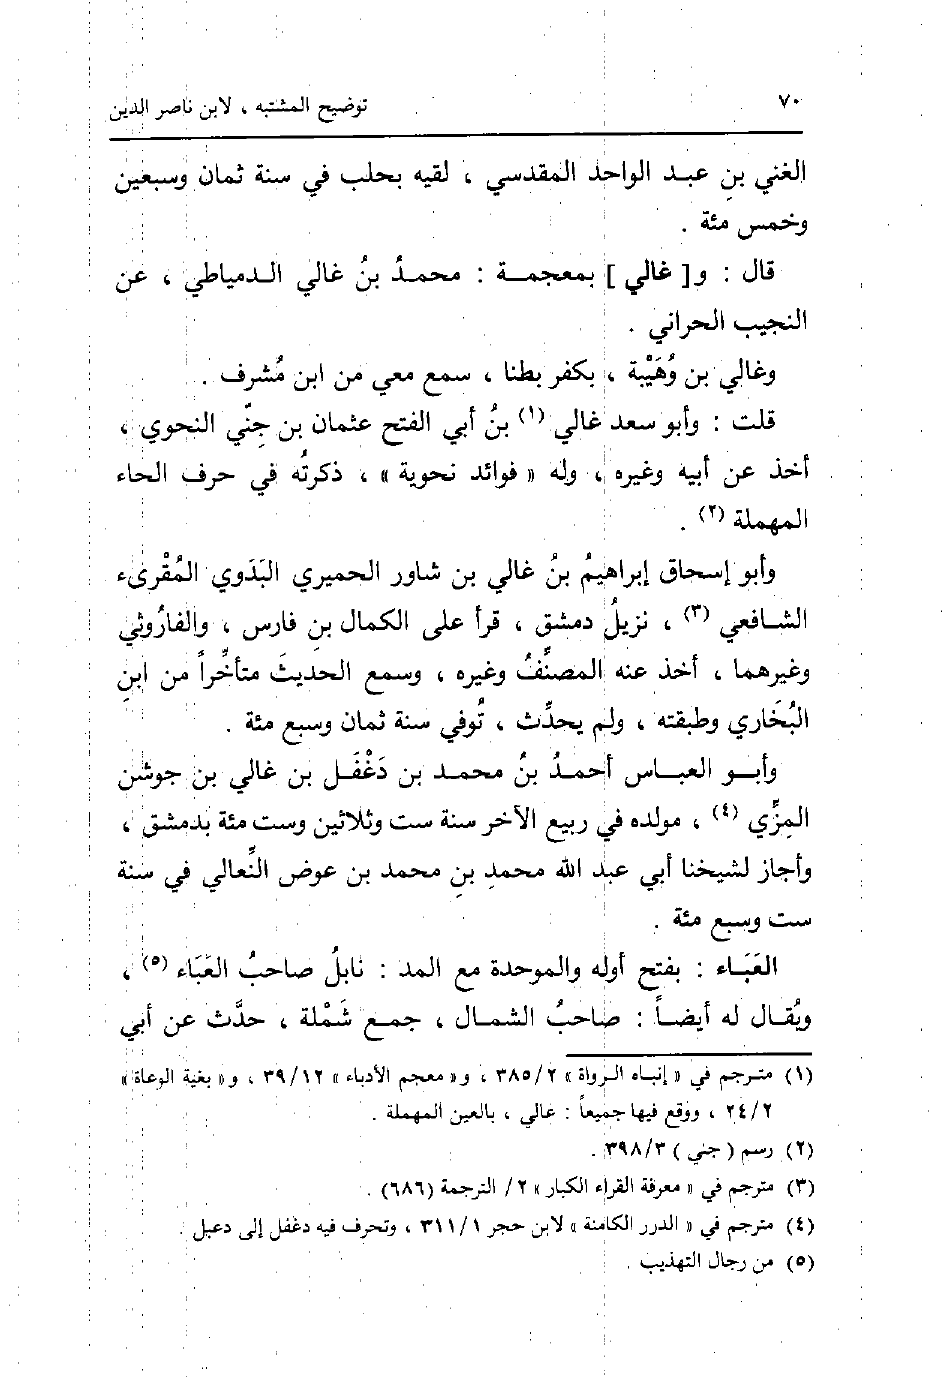 ٧٠ توضيح المشتبه ، لابن ناصر الدين
الغني بنِ عبـد الواحد المقدسي ، لقيه بحلب في سنة ثمان وسبعين
وخمس مئة .
قال : و[ غالي ] بمعجمـة : محمـدُ بنُ غالي الـدمياطي ، عن
النجيب الحراني .
وغالي بن وُهَيْبة ، بكفر بطنا ، سمع معي من ابن مُشرف .
قلت : وأبو سعد غالي (١) بنُ أبي الفتح عثمان بن جِنّي النحوي ،
أخذ عن أبيه وغيره ، وله « فوائد نحوية » ، ذكرتُه في حرف الحاء
المهملة (٢) .
وأبو إسحاق إبراهيمُ بنُ غالي بن شاور الحميري البَدَوي المُقْرىء
الشـافعي (٣) ، نزيلُ دمشق ، قرأ على الكمال بنِ فارس ، والفارُوثي
وغيرهما ، أخذ عنه المصنِّفُ وغيره ، وسمع الحديثَ متأخِّراً من ابنِ
البُخَاري وطبقته ، ولم يحدِّث ، تُوفي سنة ثمان وسبع مئة .
وأبـو العبـاس أحمدُ بنُ محمـد بن دَغْفَـل بن غالي بن جوشن
المِزِّي (٤) ، مولده في ربيع الآخر سنة ست وثلاثين وست مئة بدمشق ،
وأجاز لشيخنا أبي عبد الله محمدِ بنِ محمد بن عوض النِّعالي في سنة
ست وسبع مئة .
العَبَـاء : بفتح أوله والموحدة مع المد : نابلُ صاحبُ العَبَاء (٥) ،
ويُقـال له أيضـاً : صاحبُ الشمـال ، جمـع شَمْلة ، حدَّث عن أبي
(١) متـرجم في « إنبـاه الـرواة » ٣٨٥/٢ ، و« معجم الأدباء » ٣٩/١٢ ، و« بغية الوعاة »
٢٤/٢ ، ووقع فيها جميعاً : عالي ، بالعين المهملة .
(٢) رسم ( جني ) ٣٩٨/٣ .
(٣) مترجم في « معرفة القراء الكبار » ٢/ الترجمة (٦٨٦) .
(٤) مترجم في « الدرر الكامنة » لابن حجر ٣١١/١ ، وتحرف فيه دغفل إلى دعبل .
(٥) من رجال التهذيب .